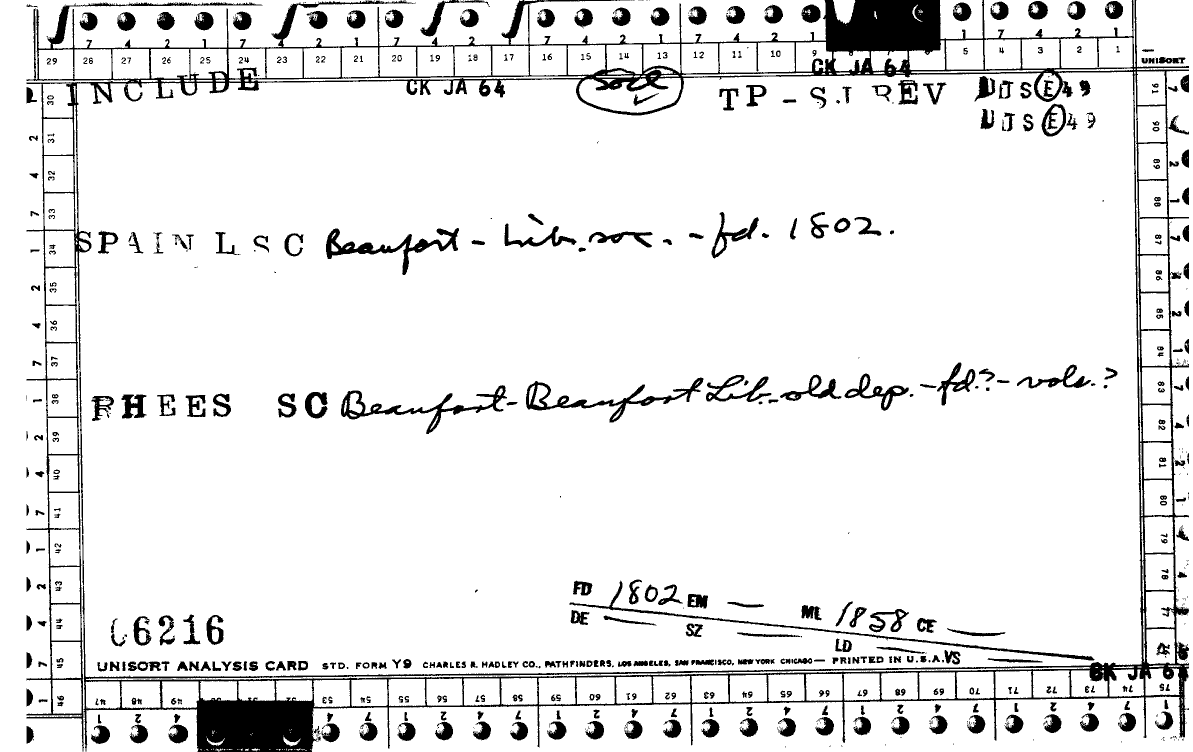 7 4 2 1 7 4 2 1 7 4 2 1 7 4 2 1 7 4 2 1 1 7 4 2 1
29 28 27 26 25 24 23 22 21 20 19 18 17 16 15 14 13 12 11 10 9 5 4 3 2 1 UNISORT
CK JA 64
INCLUDE CK JA 64 soce TP - SJ REV UJS E 49
UJS E 49
SPAIN L S C Beaufort - Lib. soc. - fd. 1802.
RHEES SC Beaufort - Beaufort Lib. - old dep. - fd? - vols.?
FD 1802 EM — ML 1858 CE —
DE — SZ — LD — VS —
06216
UNISORT ANALYSIS CARD STD. FORM Y9 CHARLES R. HADLEY CO., PATHFINDERS, LOS ANGELES, SAN FRANCISCO, NEW YORK CHICAGO — PRINTED IN U.S.A.
CK JA 64
30 31 32 33 34 35 36 37 38 39 40 41 42 43 44 45 46
91 90 89 88 87 86 85 84 83 82 81 80 79 78 77
47 48 49 53 54 55 56 57 58 59 60 61 62 63 64 65 66 67 68 69 70 71 72 73 74 75